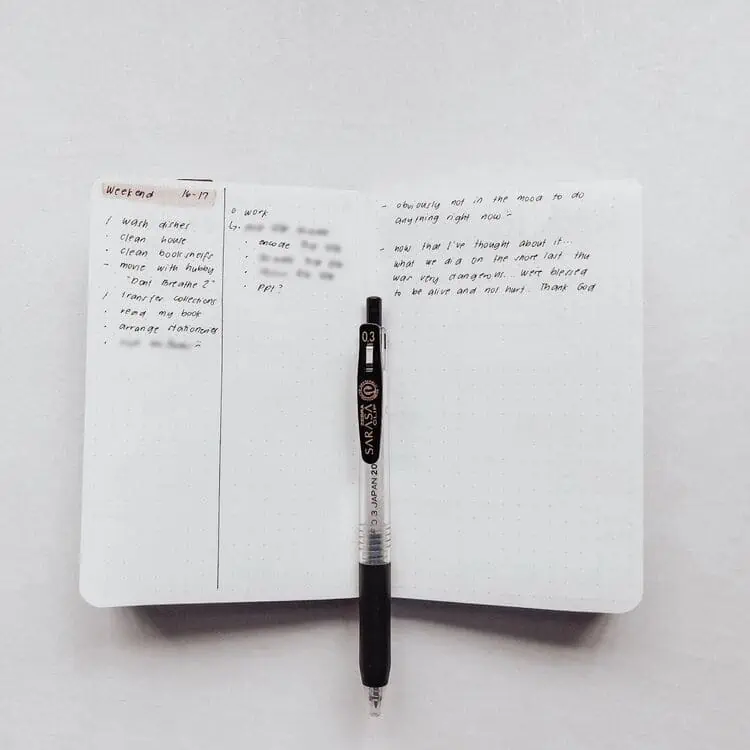 Weekend 16-17
/ wash dishes
· clean house
· clean bookshelfs
- movie with hubby
"Dont Breathe 2"
/ transfer collections
· read my book
· arrange stationeries
o work
· encode
· ppt?
- obviously not in the mood to do
anything right now
- now that I've thought about it...
what we did on the shore last thu
was very dangerous... were blessed
to be alive and not hurt. Thank God
0.3
ZEBRA
SARASA
CLIP
0.3 JAPAN 20